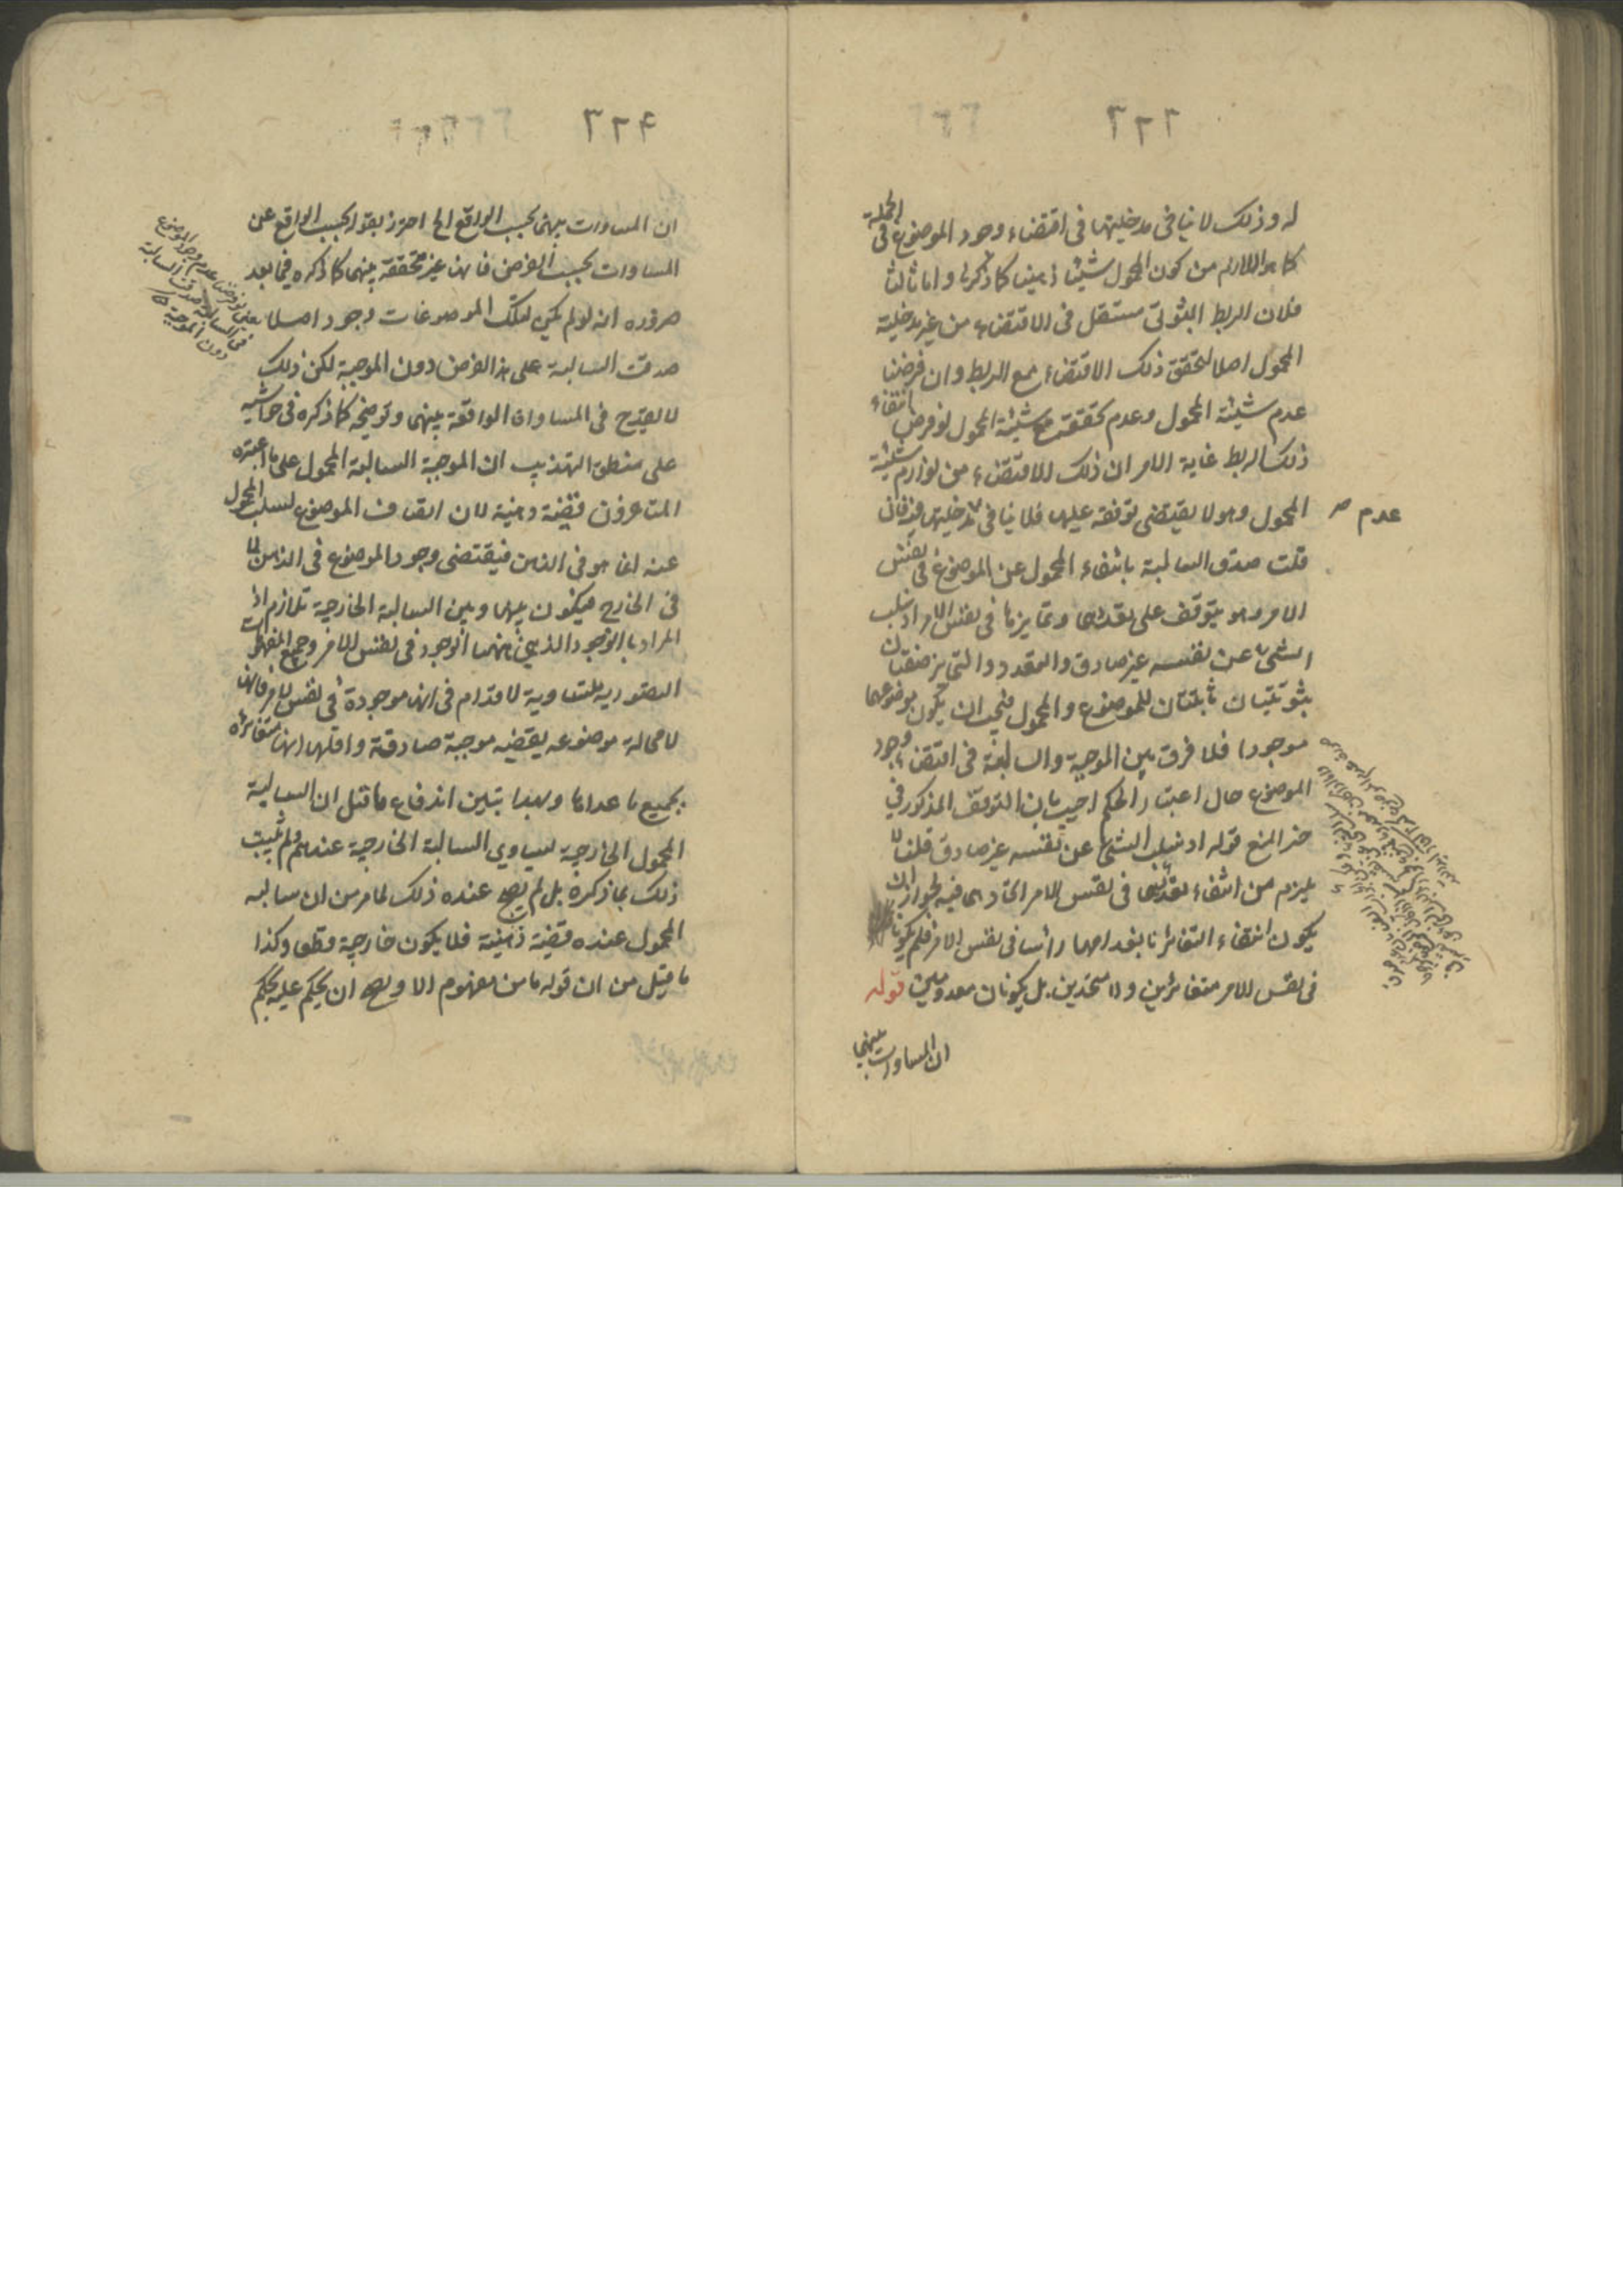 ٢٢٦
له وذلك لا ينافى مدخليتها فى اقتضاء وجود الموضوع فى الجملة
كما هو اللازم من كون المحمول شيئا ذهنيا كما ذكرنا واما ثالثا
فلان الربط الثبوتى مستقل فى الاقتضاء من غير مدخلية
المحمول اصلا لتحقق ذلك الاقتضاء مع الربط وان فرضنا
عدم شيئية المحمول وعدم تحققه مع شيئية المحمول لو فرض انتفاء
ذلك الربط غاية الامر ان ذلك الاقتضاء من لوازم شيئية
المحمول وهو لا يقتضى توقفه عليها فلا ينافى مدخليتها فيه فان
عدم
قلت صدق السالبة بانتفاء المحمول عن الموضوع فى نفس
الامر وهو يتوقف على تعددهما وتمايزهما فى نفس الامر اذ سلب
الشئ عن نفسه غير صادق والتعدد والتمايز صفتان
ثبوتيتان ثابتتان للموضوع والمحمول فيجب ان يكون موضوعهما
موجودا فلا فرق بين الموجبة والسالبة فى اقتضاء وجود
الموضوع حال اعتبار الحكم اجيب بان التوقف المذكور فى
حيز المنع قوله اذ سلب الشئ عن نفسه غير صادق قلنا لا
يلزم من انتفاء تعددهما فى نفس الامر اتحادهما فيه لجواز ان
يكون انتفاء التغاير بانعدامهما رأسا فى نفس الامر فلم يكونا
فى نفس الامر متغائرين ولا متحدين بل يكونان معدومين قوله
ان المساوات بينهما
٢٢٤
ان المساوات بينهما بحسب الواقع الخ احترز بقوله بحسب الواقع عن
المساوات بحسب الفرض فانها غير متحققة بينهما كما ذكره فيما بعد
ضرورة انه لو لم يكن لتلك الموضوعات وجود اصلا
صدقت السالبة على هذا الفرض دون الموجبة لكن ذلك
لا يقدح فى المساواة الواقعة بينهما وتوضيحه كما ذكره فى حواشيه
على منطق التهذيب ان الموجبة السالبة المحمول على ما اعتبره
المتأخرون قضية ذهنية لان اتصاف الموضوع بسلب المحمول
عنه انما هو فى الذهن فيقتضى وجود الموضوع فى الذهن لا
فى الخارج فيكون بينها وبين السالبة الخارجية تلازم اذ
المراد بالوجود الذهنى ههنا الوجود فى نفس الامر وجميع المفهومات
التصورية متساوية الاقدام فى انها موجودة فى نفس الامر فانها
لا محالة موضوعه بقضية موجبة صادقة واقلها انها متغائرة
بجميع ما عداها وبهذا يتبين اندفاع ما قيل ان السالبة
المحمول الخارجية يساوى السالبة الخارجية عندهم ولم يثبت
ذلك بما ذكره بل لم يصح عنده ذلك لما مر من ان سالبة
المحمول عنده قضية ذهنية فلا يكون خارجية قطعا وكذا
ما قيل من ان قوله ما من مفهوم الا ويصح ان يحكم عليه بحكم